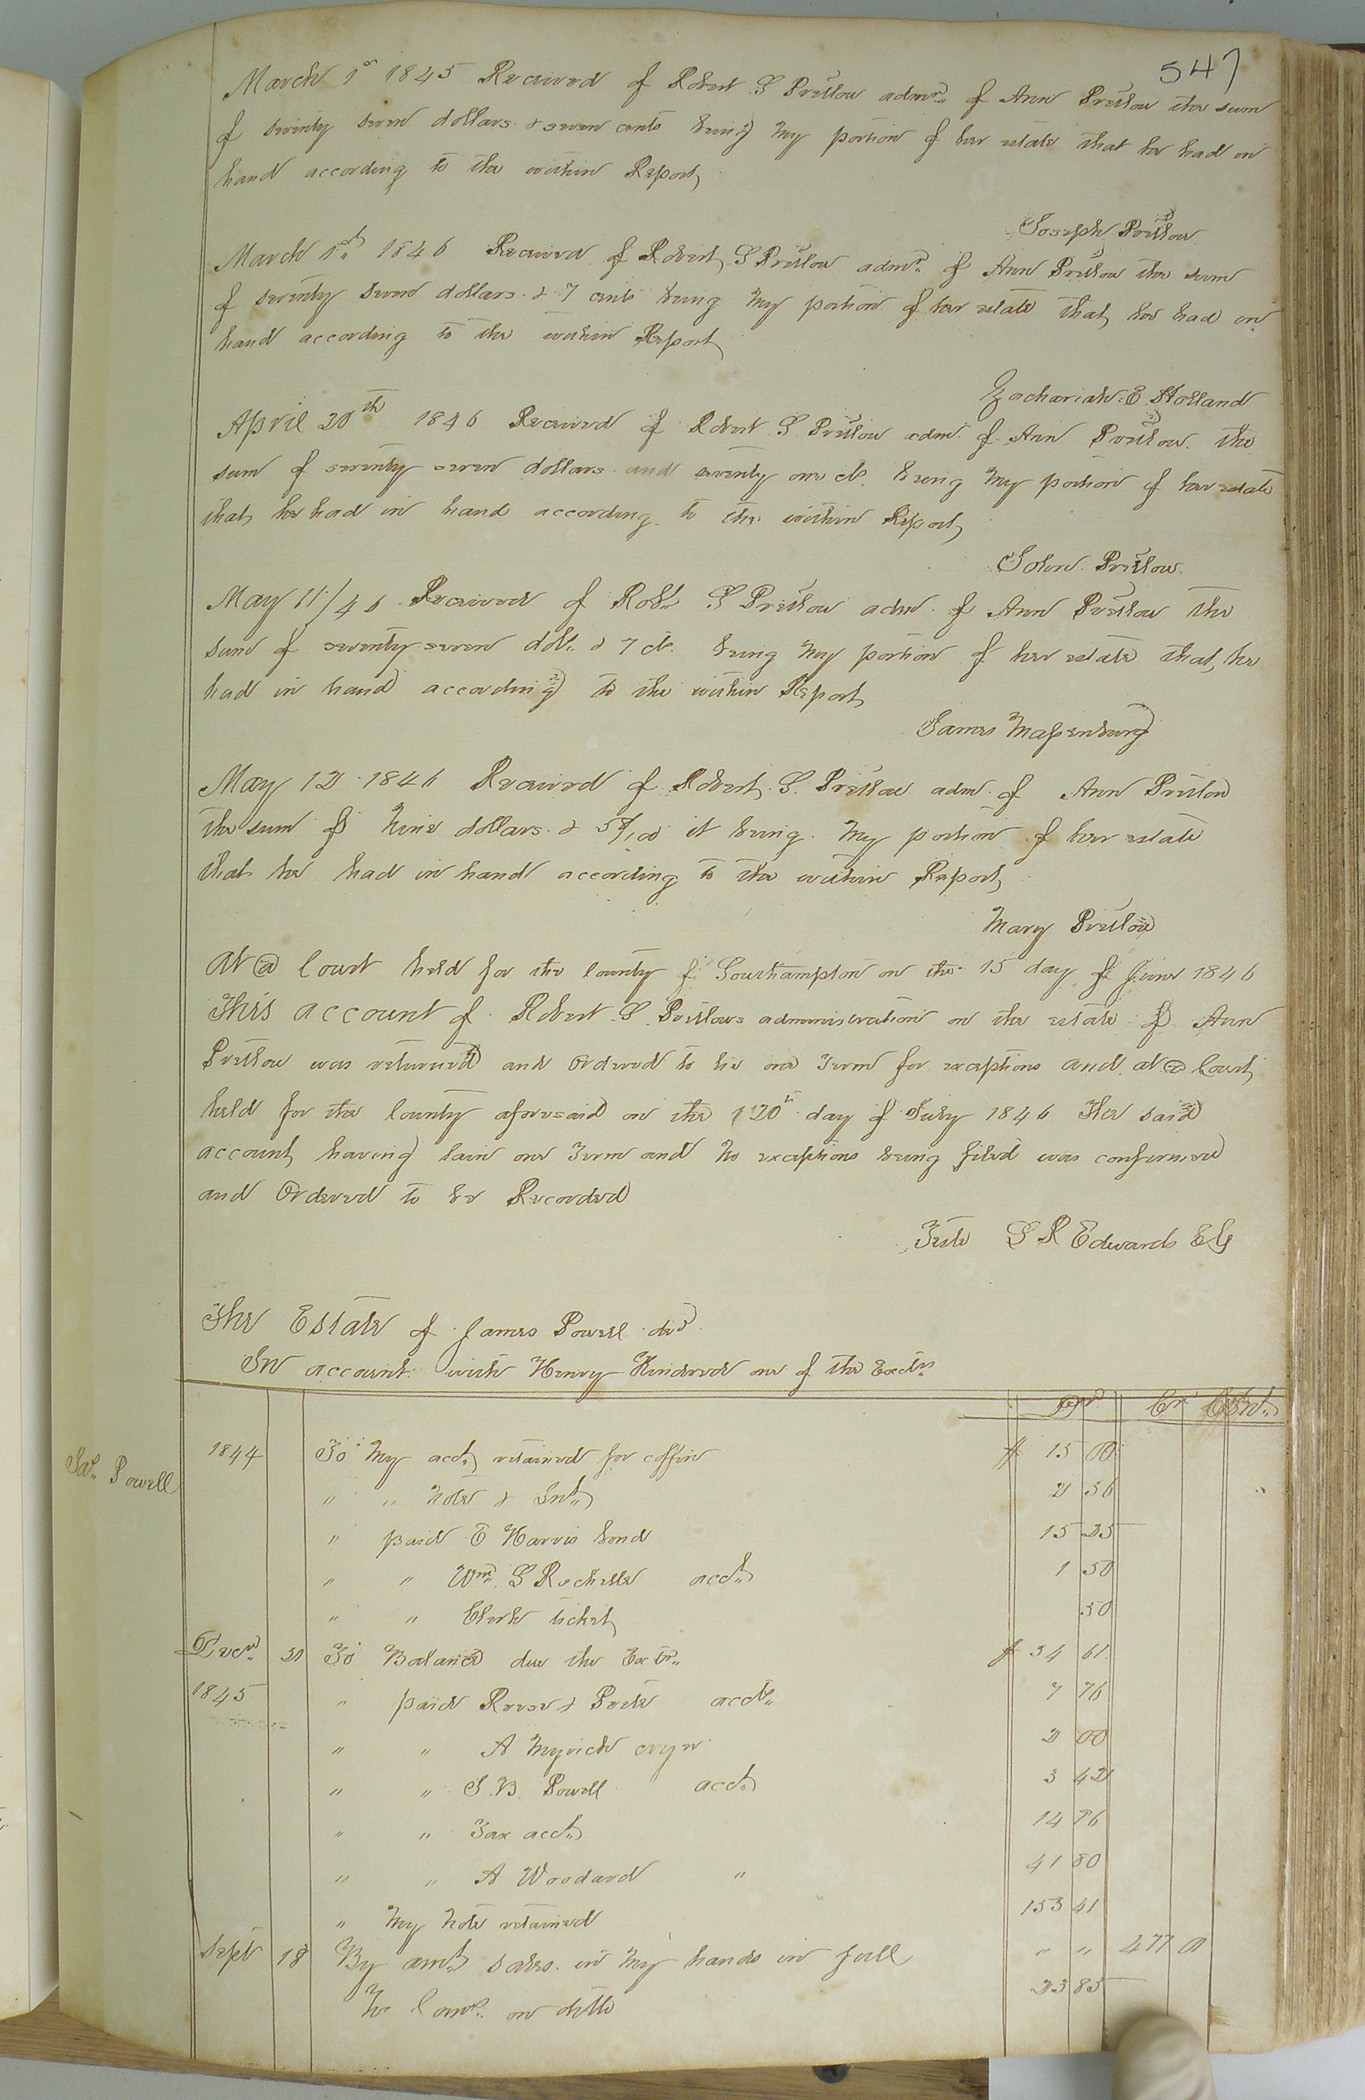 547
March 1st 1845 Received of Robert S Pretlow admr. of Ann Pretlow the sum
of seventy seven dollars & seven cents being my portion of her estate that he had in
hand according to the within Report
Joseph Pretlow
March 1st 1846 Received of Robert S Pretlow admr. of Ann Pretlow the sum
of seventy seven dollars & 7 cents being my portion of her estate that he had in
hand according to the within Report
Zachariah E Holland
April 20th 1846 Received of Robert S Pretlow adm. of Ann Pretlow the
sum of seventy seven dollars and seventy one cts. being my portion of her estate
that he had in hand according to the within Report
John Pretlow.
May 11/46 Received of Robt. S Pretlow adm. of Ann Pretlow the
sum of seventy seven dols. & 7 cts. being my portion of her estate that he
had in hand according to the within Report
James Massenburg
May 12 1846 Received of Robert S. Pretlow adm. of Ann Pretlow
the sum of Nine dollars & /100 it being my portion of her estate
that he had in hand according to the within Report
Mary Pretlow
At a Court held for the County of Southampton on the 15 day of June 1846
This account of Robert S Pretlows administration on the estate of Ann
Pretlow was returned and ordered to lie one Term for exceptions and at a Court
held for the County aforesaid on the 20th day of July 1846 The said
account having lain one Term and no exceptions being filed was confirmed
and Ordered to be Recorded
Teste L R Edwards Clk
The Estate of James Powell decd.
In account with Henry Kindred one of the Exctrs.
Dr Cr
Jas. Powell
1844 To My acct. retained for coffin $ 15 00
" " Note & Int. 2 36
" paid E Harris bond 15 25
" " Wm. S Rochelle acct. 1 50
" " Clerks ticket .50
Decr. 31 To Balance due the Exctr. $ 34 61
1845 " paid Reese & Prete accts. 7 76
" " A Myrick cryer 2 00
" " J. B. Powell acct. 3 42
" " Tax acct. 14 76
" " A Woodard " 41 80
" My Note retained 153 41
Sept 18 By amt. sales in my hands in full " " 477 01
To Coms. on ditto 23 85